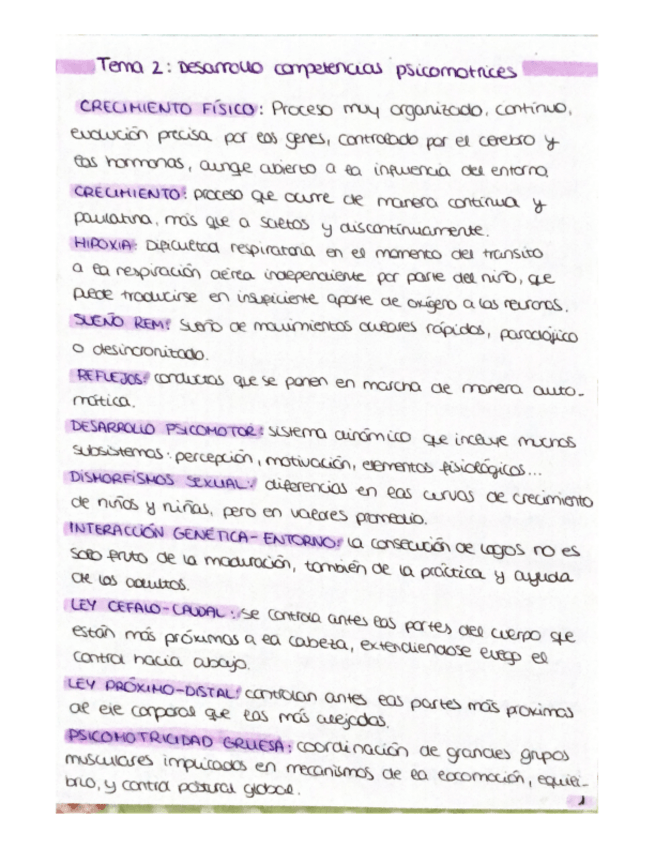 Tema 2: Desarrollo competencias psicomotrices
CRECIMIENTO FÍSICO: Proceso muy organizado, continuo,
evolución precisa por los genes, controlado por el cerebro y
las hormonas, aunqe abierto a la influencia del entorno.
CRECIMIENTO: proceso que ocurre de manera continua y
paulatina, más que a saltos y discontinuamente.
HIPOXIA: Dificultad respiratoria en el momento del transito
a la respiración aérea independiente por parte del niño, que
puede traducirse en insuficiente aporte de oxígeno a las neuronas.
SUEÑO REM: Sueño de movimientos oculares rápidos, paradójico
o desincronizado.
REFLEJOS: conductas que se ponen en marcha de manera auto-
mática.
DESARROLLO PSICOMOTOR: sistema dinámico que incluye muchos
subsistemas: percepción, motivación, elementos fisiológicos...
DISMORFISMOS SEXUAL: diferencias en las curvas de crecimiento
de niños y niñas, pero en valores promedio.
INTERACCIÓN GENÉTICA-ENTORNO: la consecución de logros no es
solo fruto de la maduración, también de la práctica y ayuda
de los adultos.
LEY CEFALO-CAUDAL: se controla antes las partes del cuerpo que
están más próximas a la cabeza, extendiendose luego el
control hacia abajo.
LEY PRÓXIMO-DISTAL: controlan antes las partes más proximas
al eje corporal que las más alejadas.
PSICOMOTRICIDAD GRUESA: coordinación de grandes grupos
musculares implicados en mecanismos de la locomoción, equili-
brio, y control postural global.
1